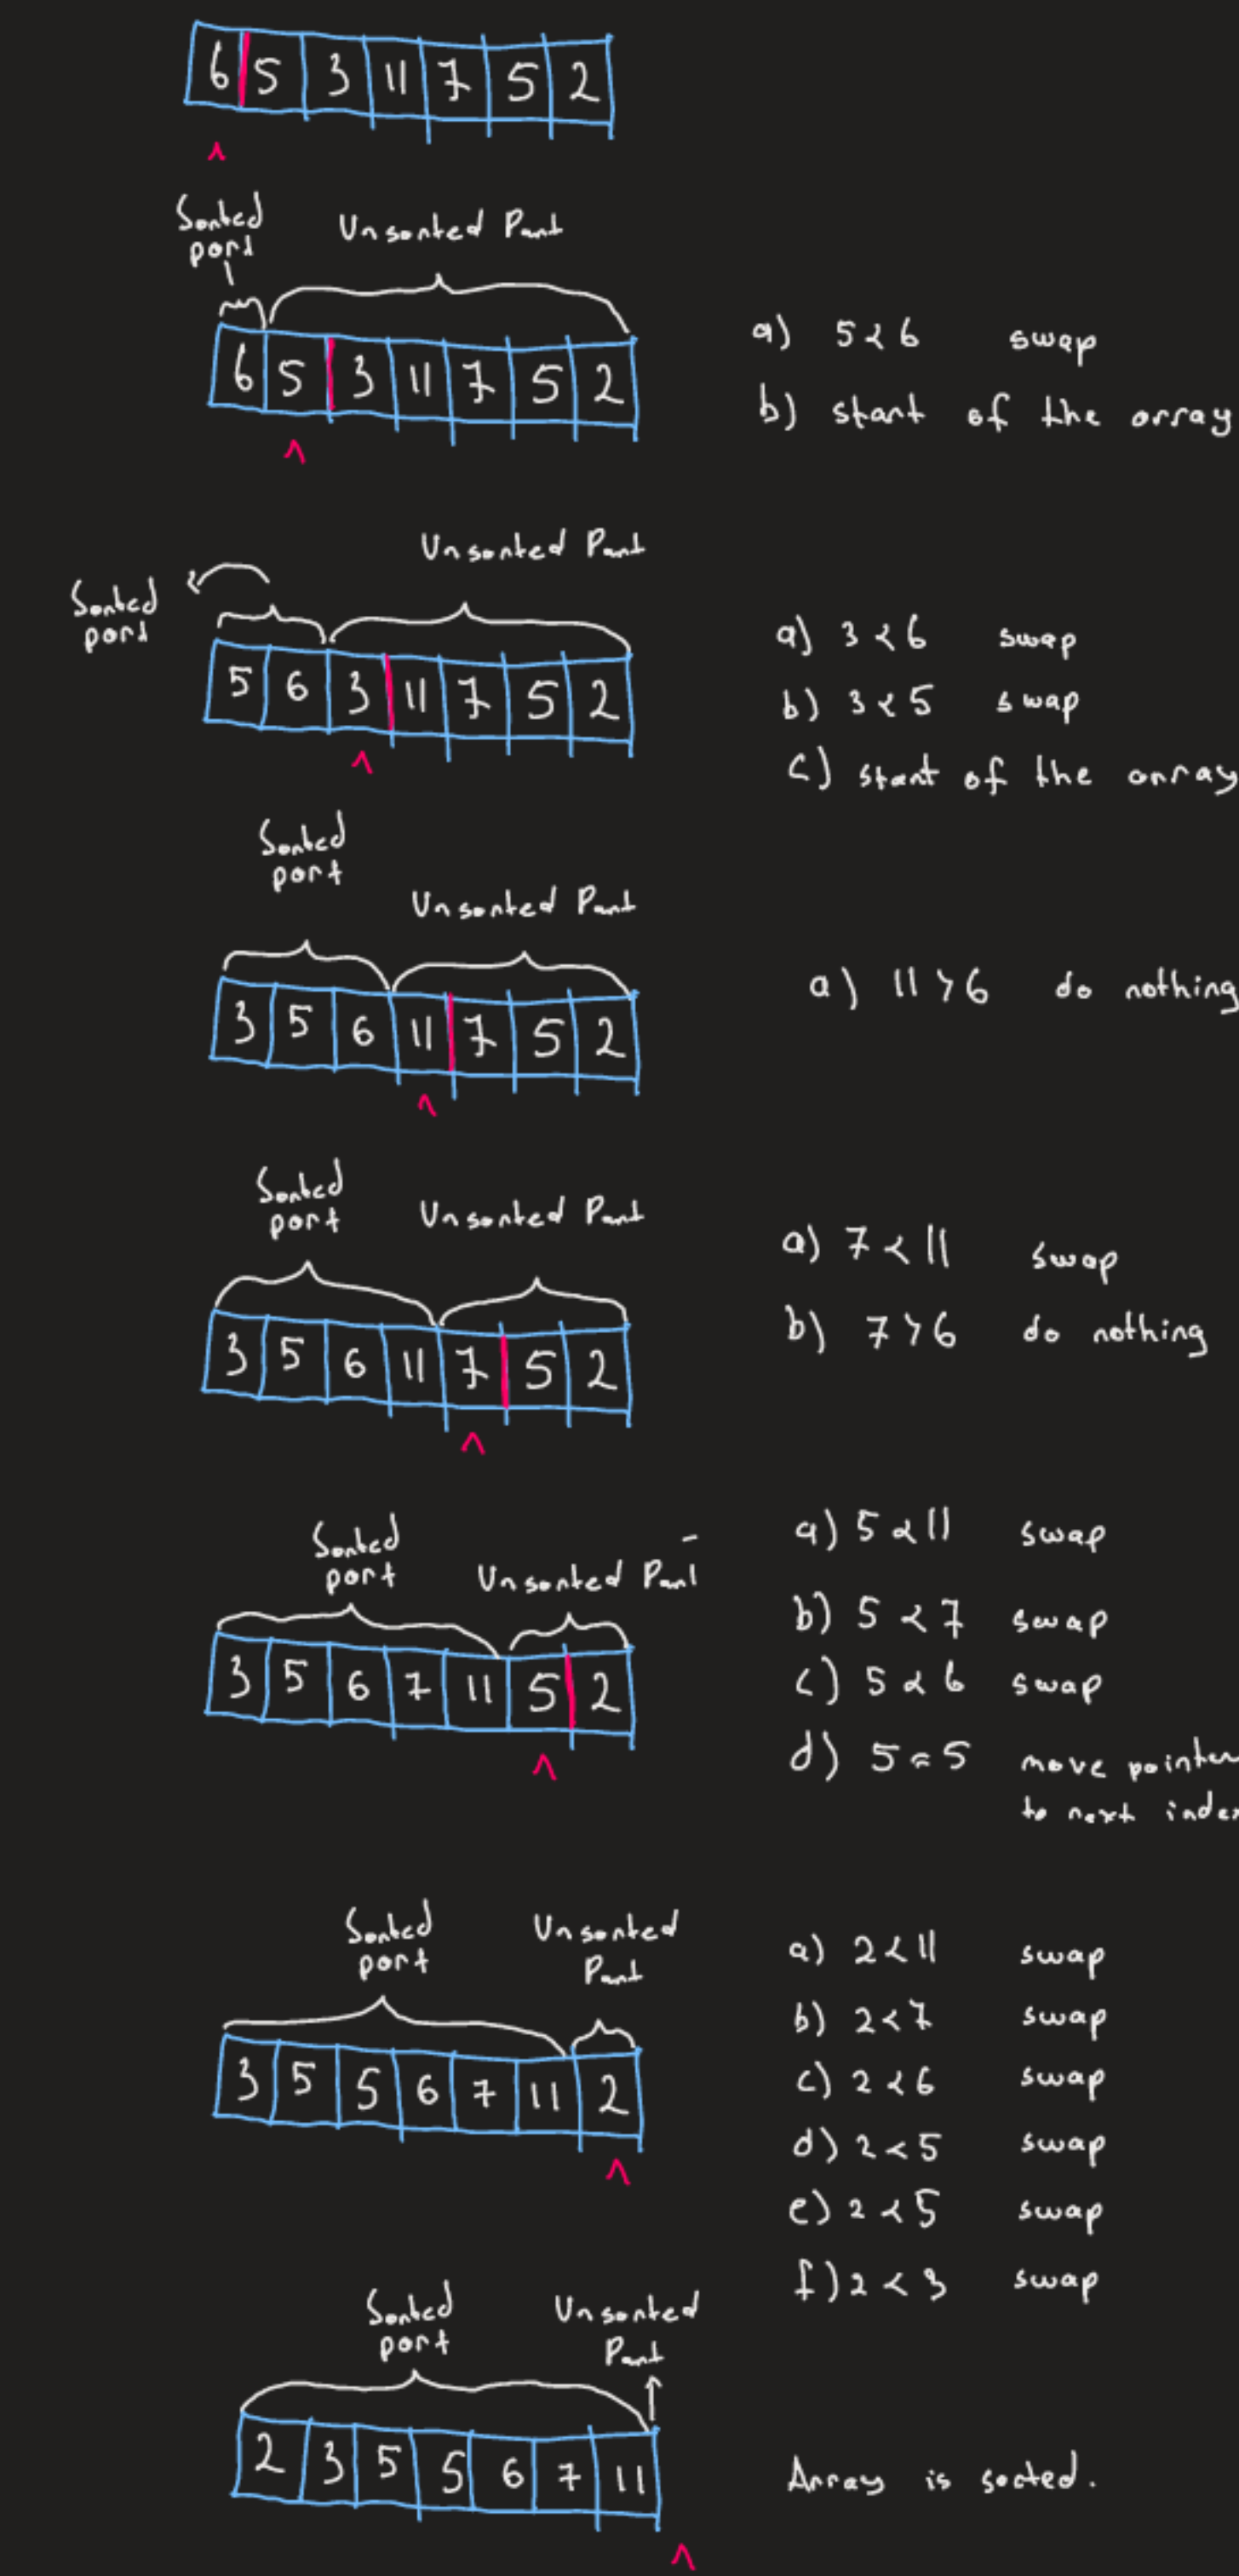 6 5 3 11 7 5 2
Sorted
part
Unsorted Part
6 5 3 11 7 5 2
a) 5 < 6 swap
b) start of the array
Unsorted Part
Sorted
part
5 6 3 11 7 5 2
a) 3 < 6 swap
b) 3 < 5 swap
c) start of the array
Sorted
part
Unsorted Part
3 5 6 11 7 5 2
a) 11 > 6 do nothing
Sorted
part
Unsorted Part
3 5 6 11 7 5 2
a) 7 < 11 swap
b) 7 > 6 do nothing
Sorted
part
Unsorted Part
3 5 6 7 11 5 2
a) 5 < 11 swap
b) 5 < 7 swap
c) 5 < 6 swap
d) 5 = 5 move pointer
to next index
Sorted
part
Unsorted
Part
3 5 5 6 7 11 2
a) 2 < 11 swap
b) 2 < 7 swap
c) 2 < 6 swap
d) 2 < 5 swap
e) 2 < 5 swap
f) 2 < 3 swap
Sorted
part
Unsorted
Part
2 3 5 5 6 7 11
Array is sorted.